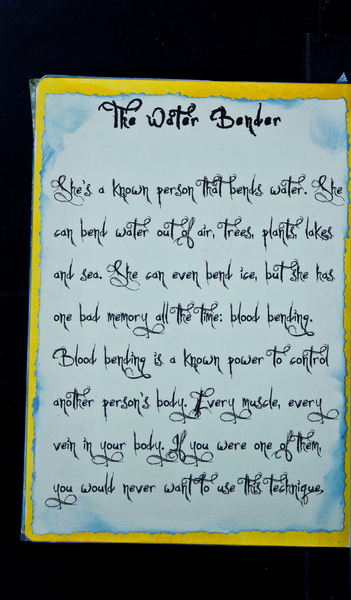 The Water Bender
She's a known person that bends water. She
can bend water out of air, trees, plants, lakes
and sea. She can even bend ice, but she has
one bad memory all the time: blood bending.
Blood bending is a known power to control
another person's body. Every muscle, every
vein in your body. If you were one of them,
you would never want to use this technique,